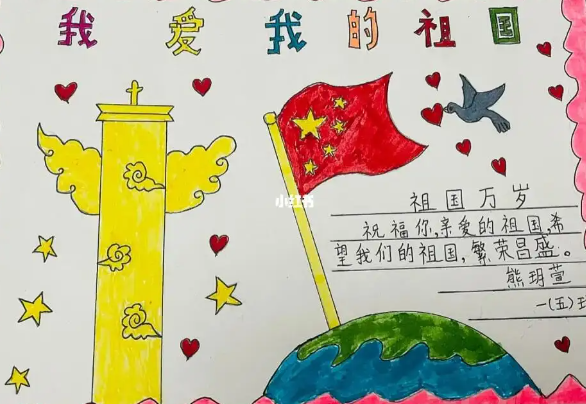 我爱我的祖国
小红书
祖国万岁
祝福你,亲爱的祖国,希
望我们的祖国,繁荣昌盛。
熊玥萱
一(五)五